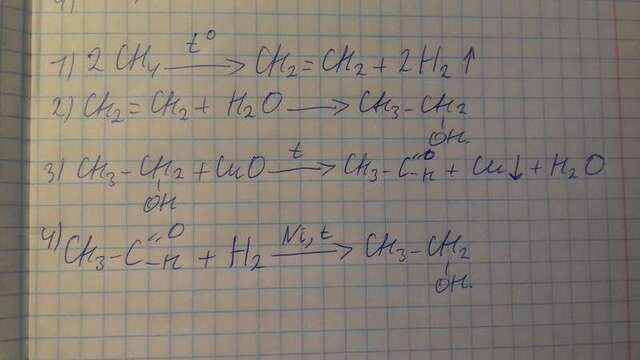 1) 2CH₄ —t°→ CH₂=CH₂ + 2H₂↑
2) CH₂=CH₂ + H₂O ⟶ CH₃-CH₂
OH
3) CH₃-CH₂ + CuO —t→ CH₃-C=O-H + Cu↓ + H₂O
OH
4) CH₃-C=O-H + H₂ —Ni, t→ CH₃-CH₂
OH